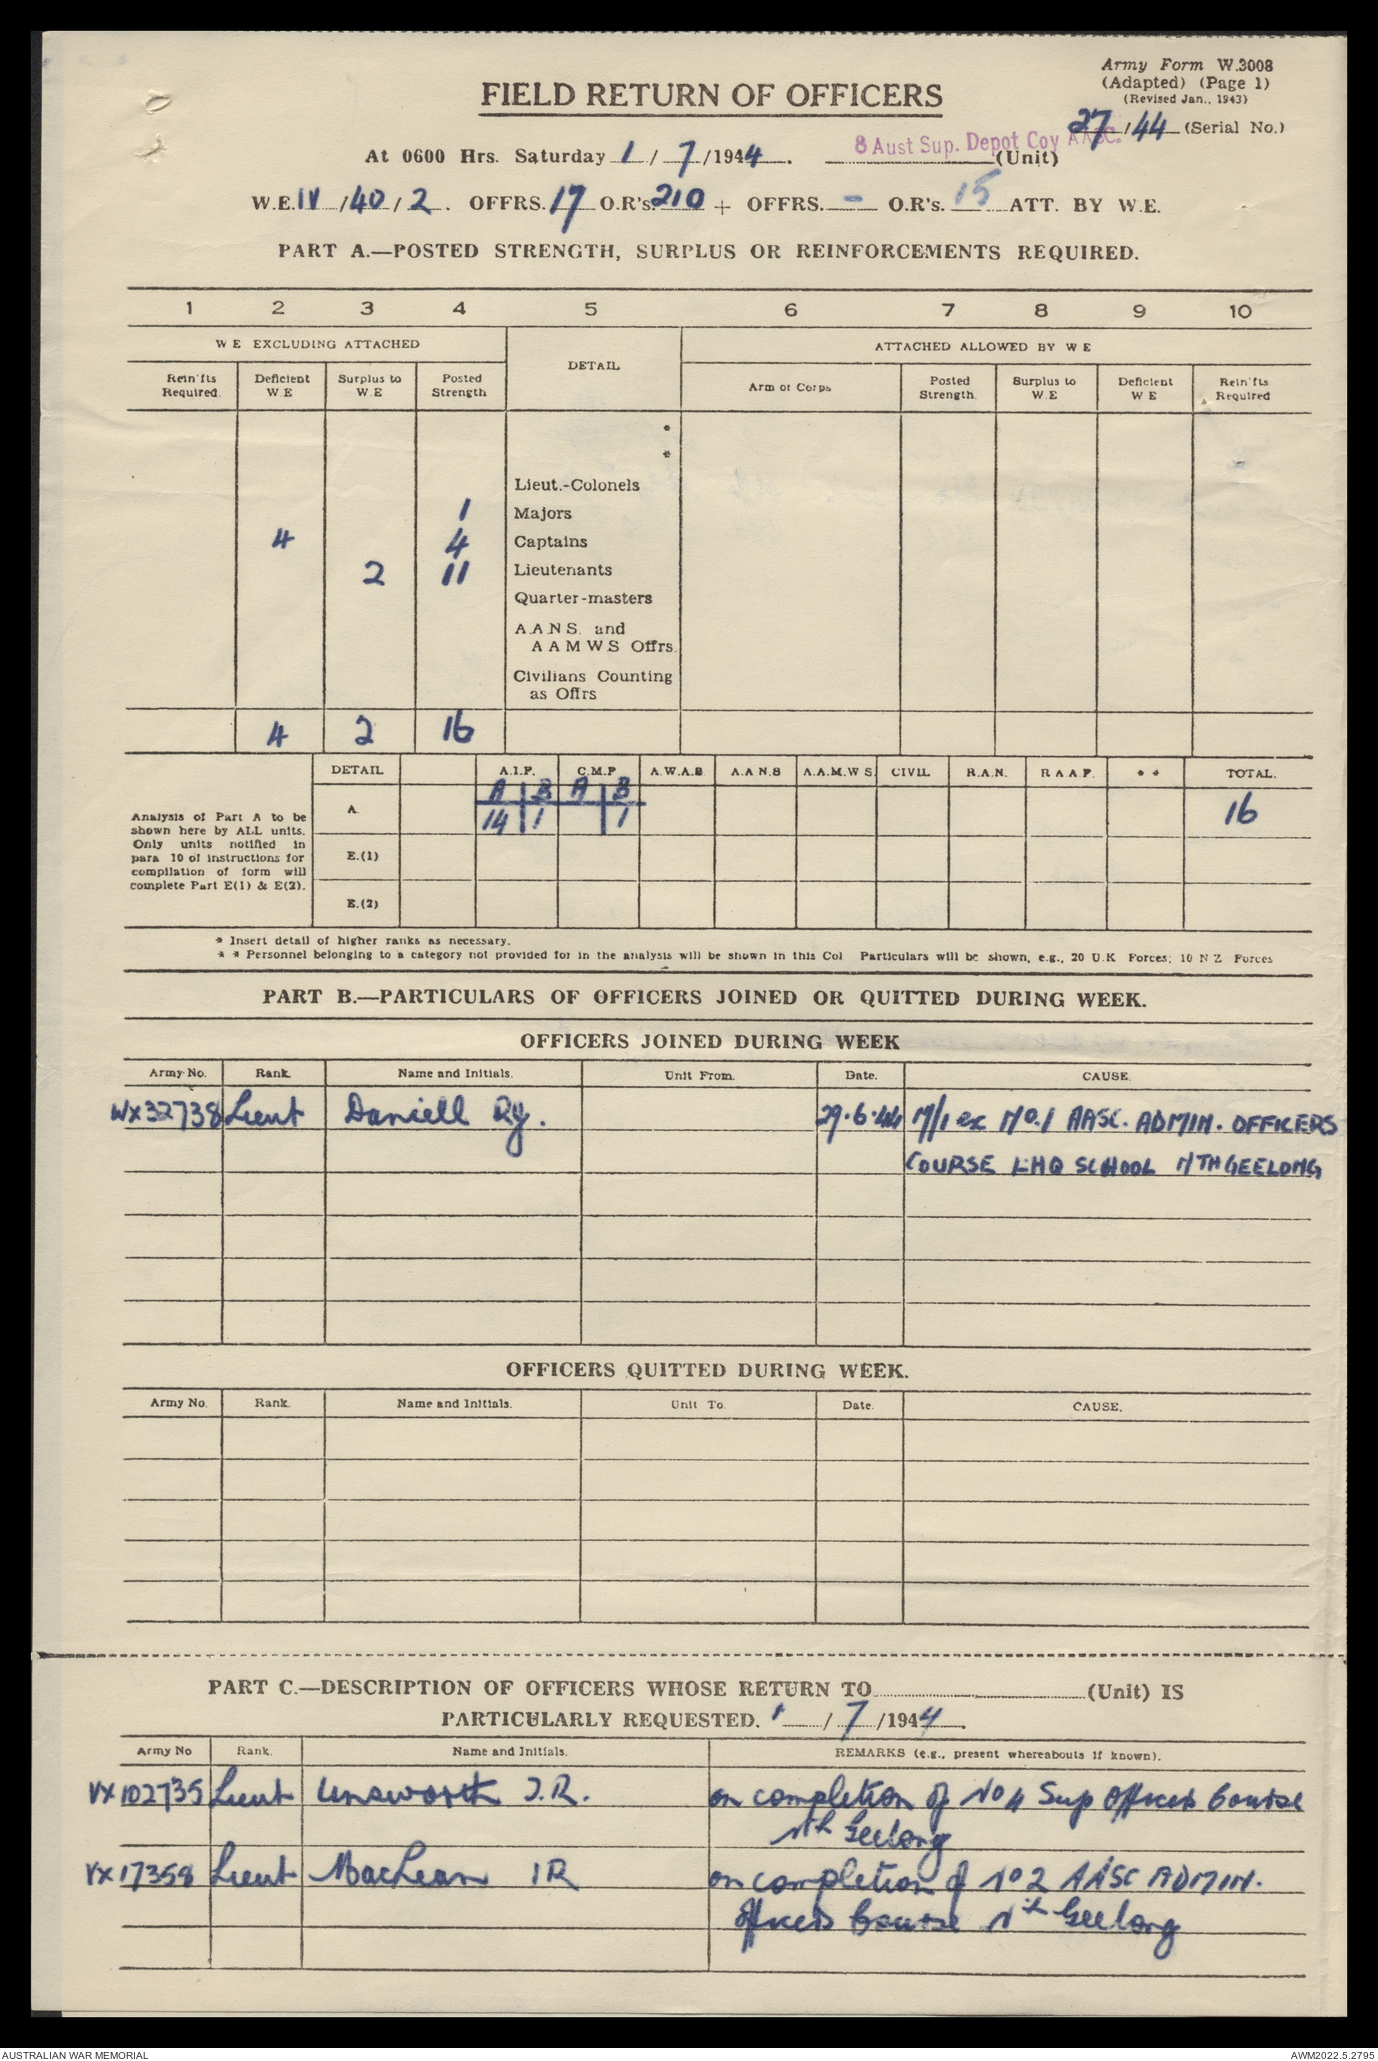 Army Form W.3008
(Adapted) (Page 1)
(Revised Jan., 1943)
FIELD RETURN OF OFFICERS
27/44 (Serial No.)
8 Aust Sup. Depot Coy AASC.
At 0600 Hrs. Saturday 1/7/1944. (Unit)
W.E. IV/40/2. OFFRS. 17 O.R's. 210 + OFFRS. - O.R's. 15 ATT. BY W.E.
PART A.—POSTED STRENGTH, SURPLUS OR REINFORCEMENTS REQUIRED.
1 2 3 4 5 6 7 8 9 10
W E EXCLUDING ATTACHED DETAIL ATTACHED ALLOWED BY W E
Rein'fts Required. Deficient W.E Surplus to W.E Posted Strength Arm or Corps Posted Strength. Surplus to W.E Deficient W E Rein'fts Required
*
*
Lieut.-Colonels
1 Majors
4 4 Captains
2 11 Lieutenants
Quarter-masters
A.A.N.S. and
A A M W.S Offrs.
Civilians Counting
as Offrs
4 2 16
DETAIL A.I.F. C.M.F A.W.A.S A.A.N.S A.A.M.W.S. CIVIL R.A.N. R A A.F. * * TOTAL.
A B A B
A. 14 1 1 16
Analysis of Part A to be
shown here by ALL units.
Only units notified in
para 10 of instructions for
compilation of form will
complete Part E(1) & E(2).
E.(1)
E.(2)
* Insert detail of higher ranks as necessary.
* * Personnel belonging to a category not provided for in the analysis will be shown in this Col Particulars will be shown, e.g., 20 U.K Forces; 10 N Z Forces
PART B.—PARTICULARS OF OFFICERS JOINED OR QUITTED DURING WEEK.
OFFICERS JOINED DURING WEEK
Army No. Rank. Name and Initials. Unit From. Date. CAUSE.
WX32738 Lieut Daniell RJ. 29.6.44 M/I ex No.1 AASC. ADMIN. OFFICERS
COURSE LHQ SCHOOL NTH GEELONG
OFFICERS QUITTED DURING WEEK.
Army No. Rank. Name and Initials. Unit To. Date. CAUSE.
PART C.—DESCRIPTION OF OFFICERS WHOSE RETURN TO (Unit) IS
PARTICULARLY REQUESTED. 1/7/1944.
Army No Rank. Name and Initials. REMARKS (e.g., present whereabouts if known).
VX102735 Lieut Unsworth J.R. on completion of No 4 Sup Officers Course
Nth Geelong
VX17358 Lieut MacLean IR on completion of No 2 AASC ADMIN.
Officers Course Nth Geelong
AUSTRALIAN WAR MEMORIAL
AWM2022.5.2795